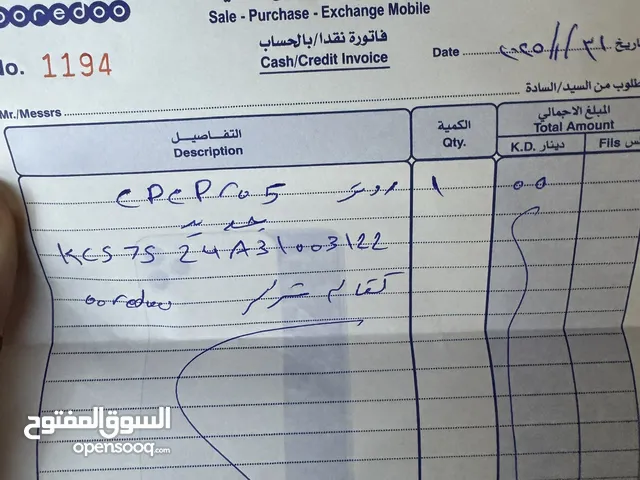 ooredoo
Sale - Purchase - Exchange Mobile
فاتورة نقدا/بالحساب
Cash/Credit Invoice
No. 1194
Date ٢٠٢٥/١/٣١ تاريخ
Mr./Messrs طلوب من السيد/السادة
التفاصيل الكمية المبلغ الاجمالي
Description Qty. Total Amount
K.D. دينار Fils
CPE Pro 5 ١ ٥٥
جديد
KCS75 24A31003122
ooredoo كفالة شركة
السوق المفتوح
opensooq.com